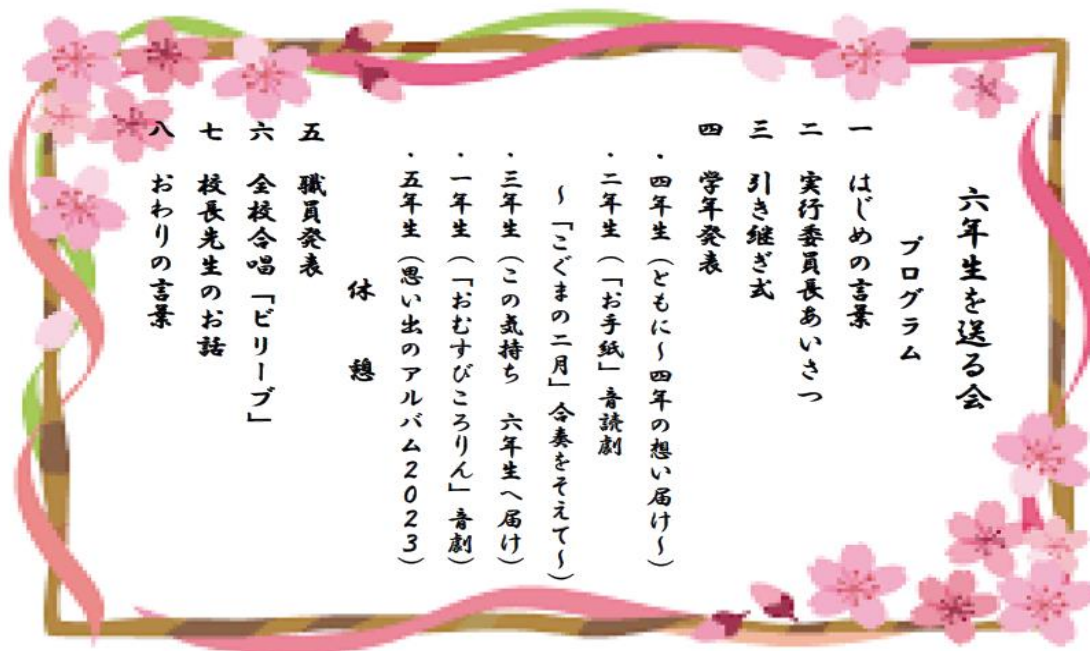 六年生を送る会
プログラム
一　はじめの言葉
二　実行委員長あいさつ
三　引き継ぎ式
四　学年発表
・四年生（ともに～四年の想い届け～）
・二年生（「お手紙」音読劇
～「こぐまの二月」合奏をそえて～）
・三年生（この気持ち　六年生へ届け）
・一年生（「おむすびころりん」音劇）
・五年生（思い出のアルバム２０２３）
休　憩
五　職員発表
六　全校合唱「ビリーブ」
七　校長先生のお話
八　おわりの言葉